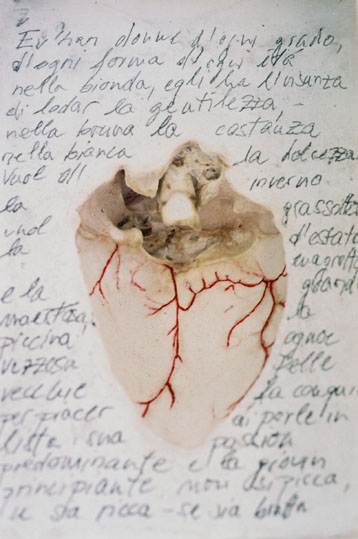 Ev'han donne d'ogni grado,
d'ogni forma d'ogni età
nella bionda, egli ha l'usanza
di lodar la gentilezza -
nella bruna la costanza
nella bianca la dolcezza
vuol di inverno
la grassotta
vuol d'estate
la magrotta
e la grande
maestosa, la
piccina ognor
vezzosa Delle
vecchie la conqui
per piacer di porle in
lista sua passion
predominante e la giovin
principiante non si picca,
se sia ricca - se sia brutta